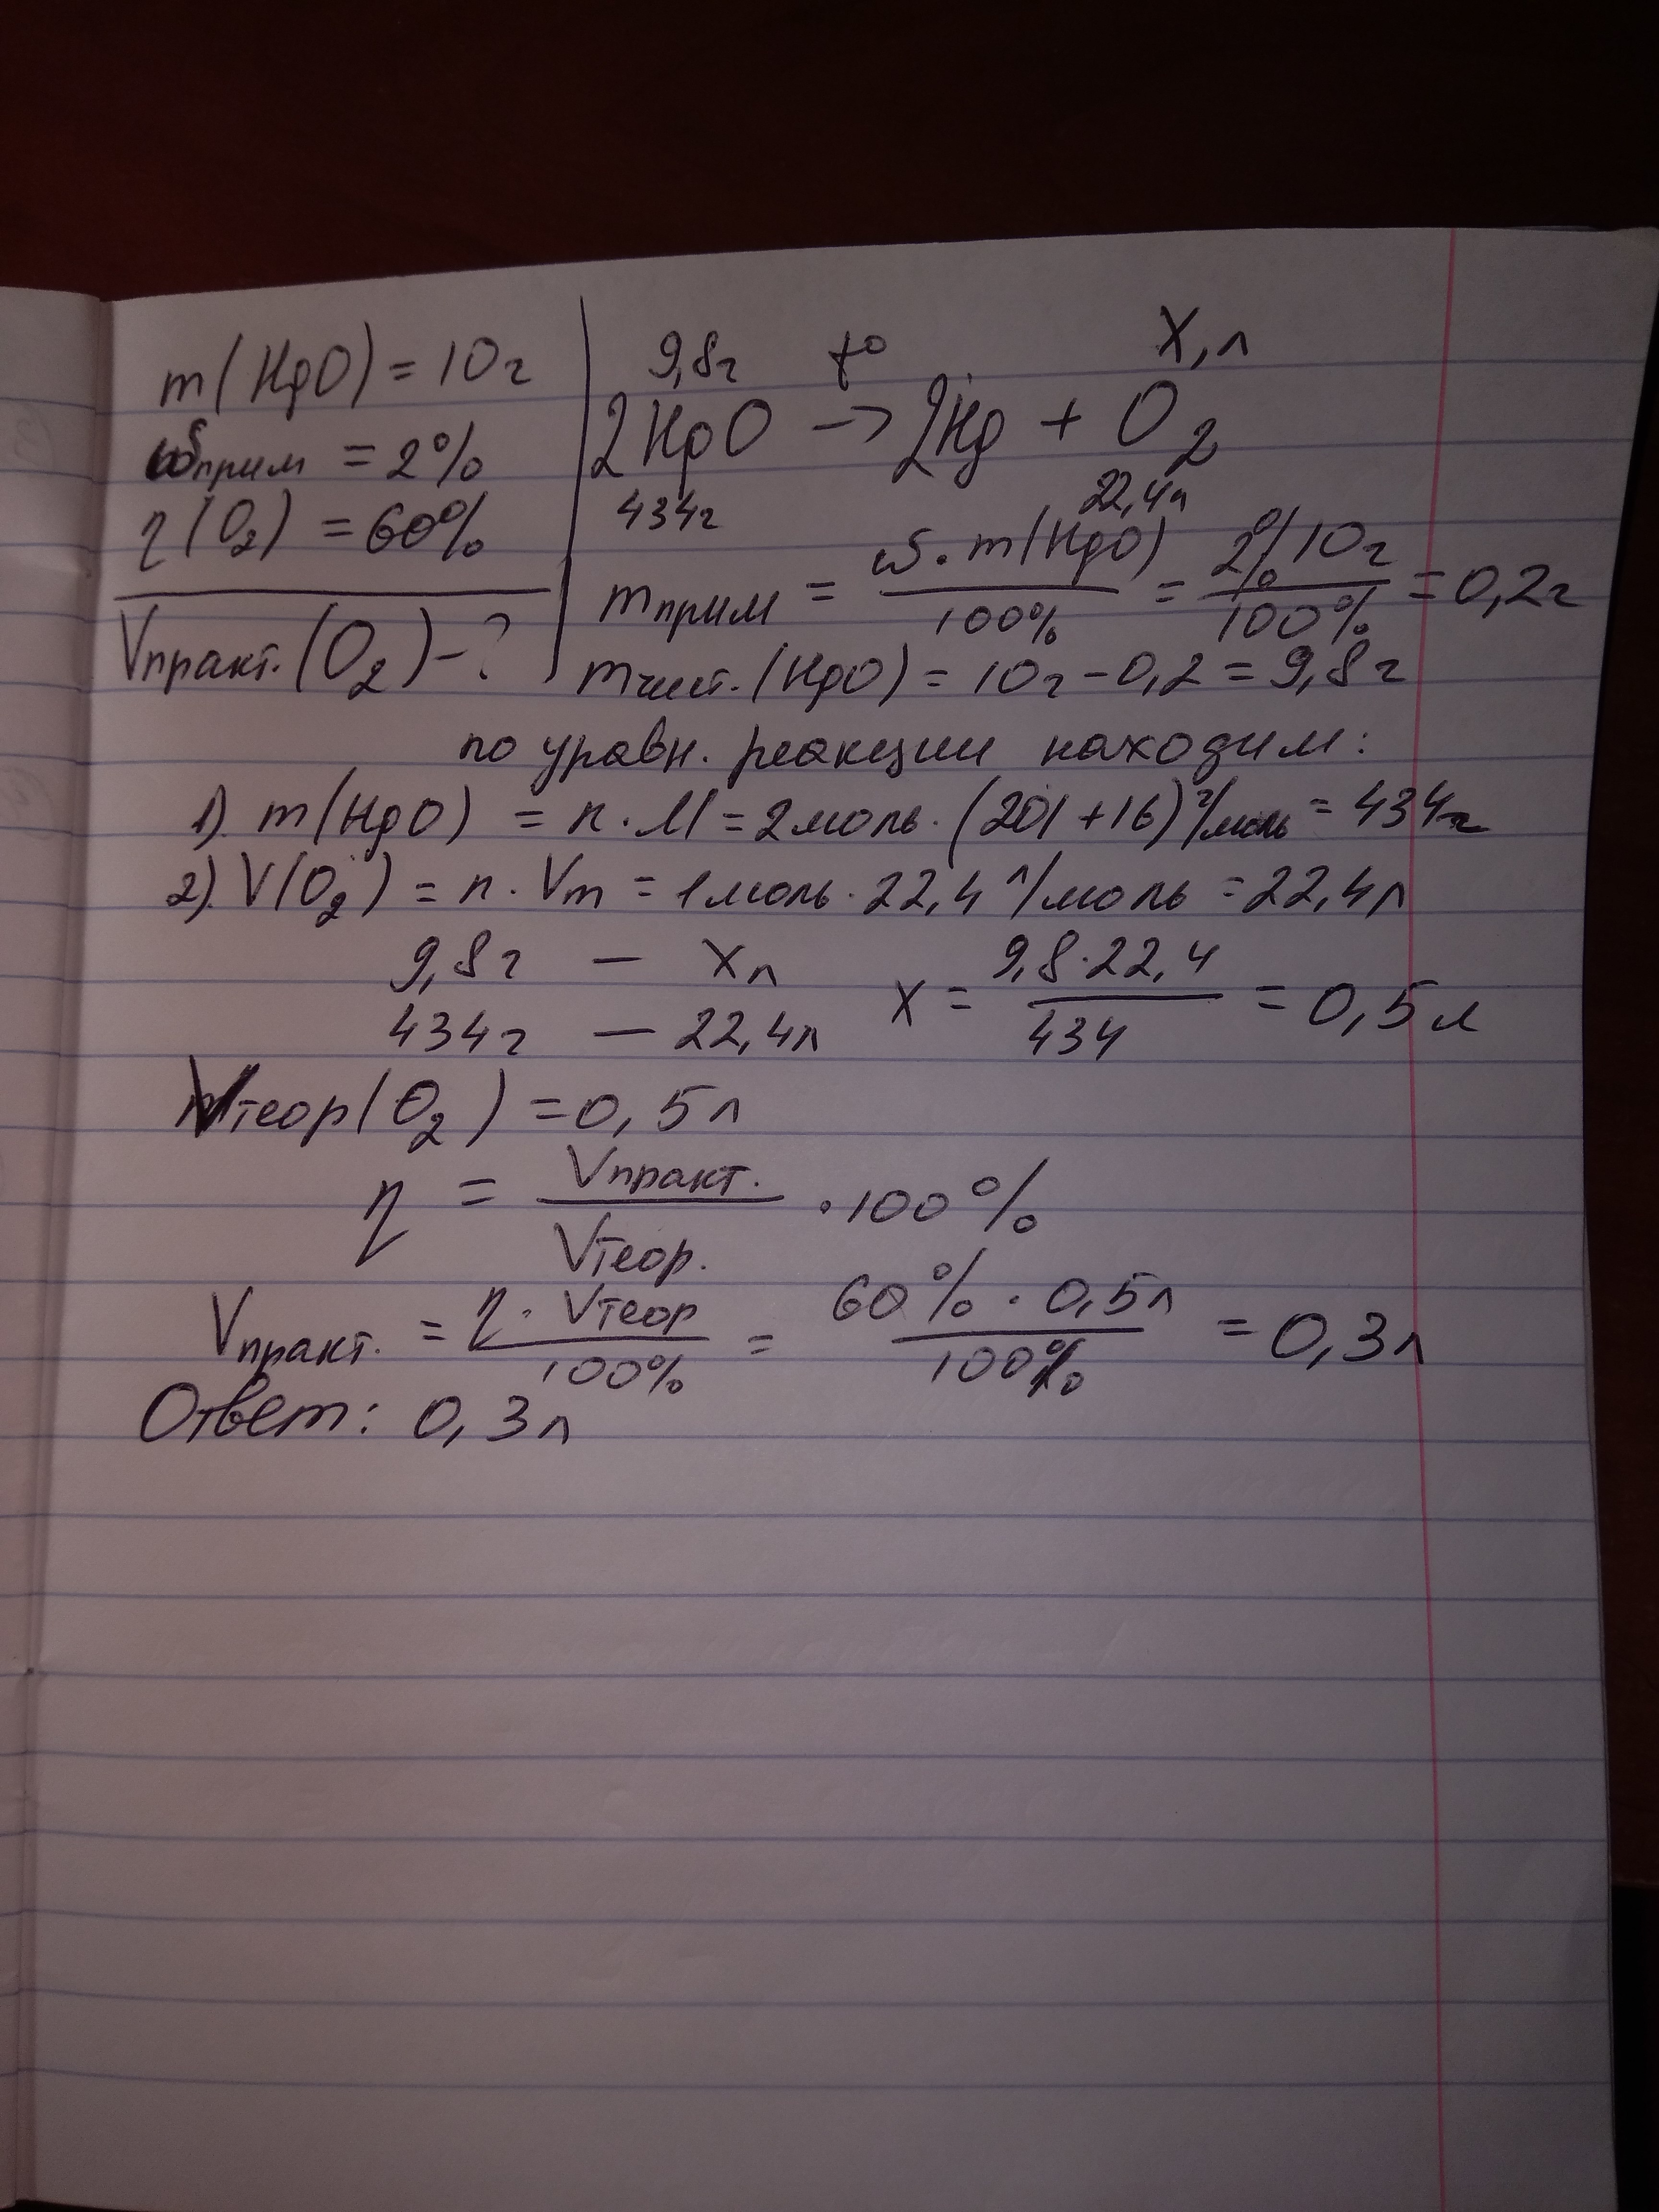 m(HgO) = 10г
ωприм = 2%
η(O₂) = 60%
Vпракт.(O₂) - ?
9,8г t° X, л
2HgO → 2Hg + O₂
434г 22,4л
mприм = ω · m(HgO) / 100% = 2% 10г / 100% = 0,2г
mчист.(HgO) = 10г - 0,2 = 9,8г
по уравн. реакции находим:
1). m(HgO) = n · M = 2моль · (201 + 16) г/моль = 434г
2). V(O₂) = n · Vm = 1моль · 22,4 л/моль = 22,4л
9,8г — Xл
434г — 22,4л
X = 9,8 · 22,4 / 434 = 0,5л
Vтеор(O₂) = 0,5л
η = Vпракт. / Vтеор. · 100%
Vпракт. = η · Vтеор / 100% = 60% · 0,5л / 100% = 0,3л
Ответ: 0,3л